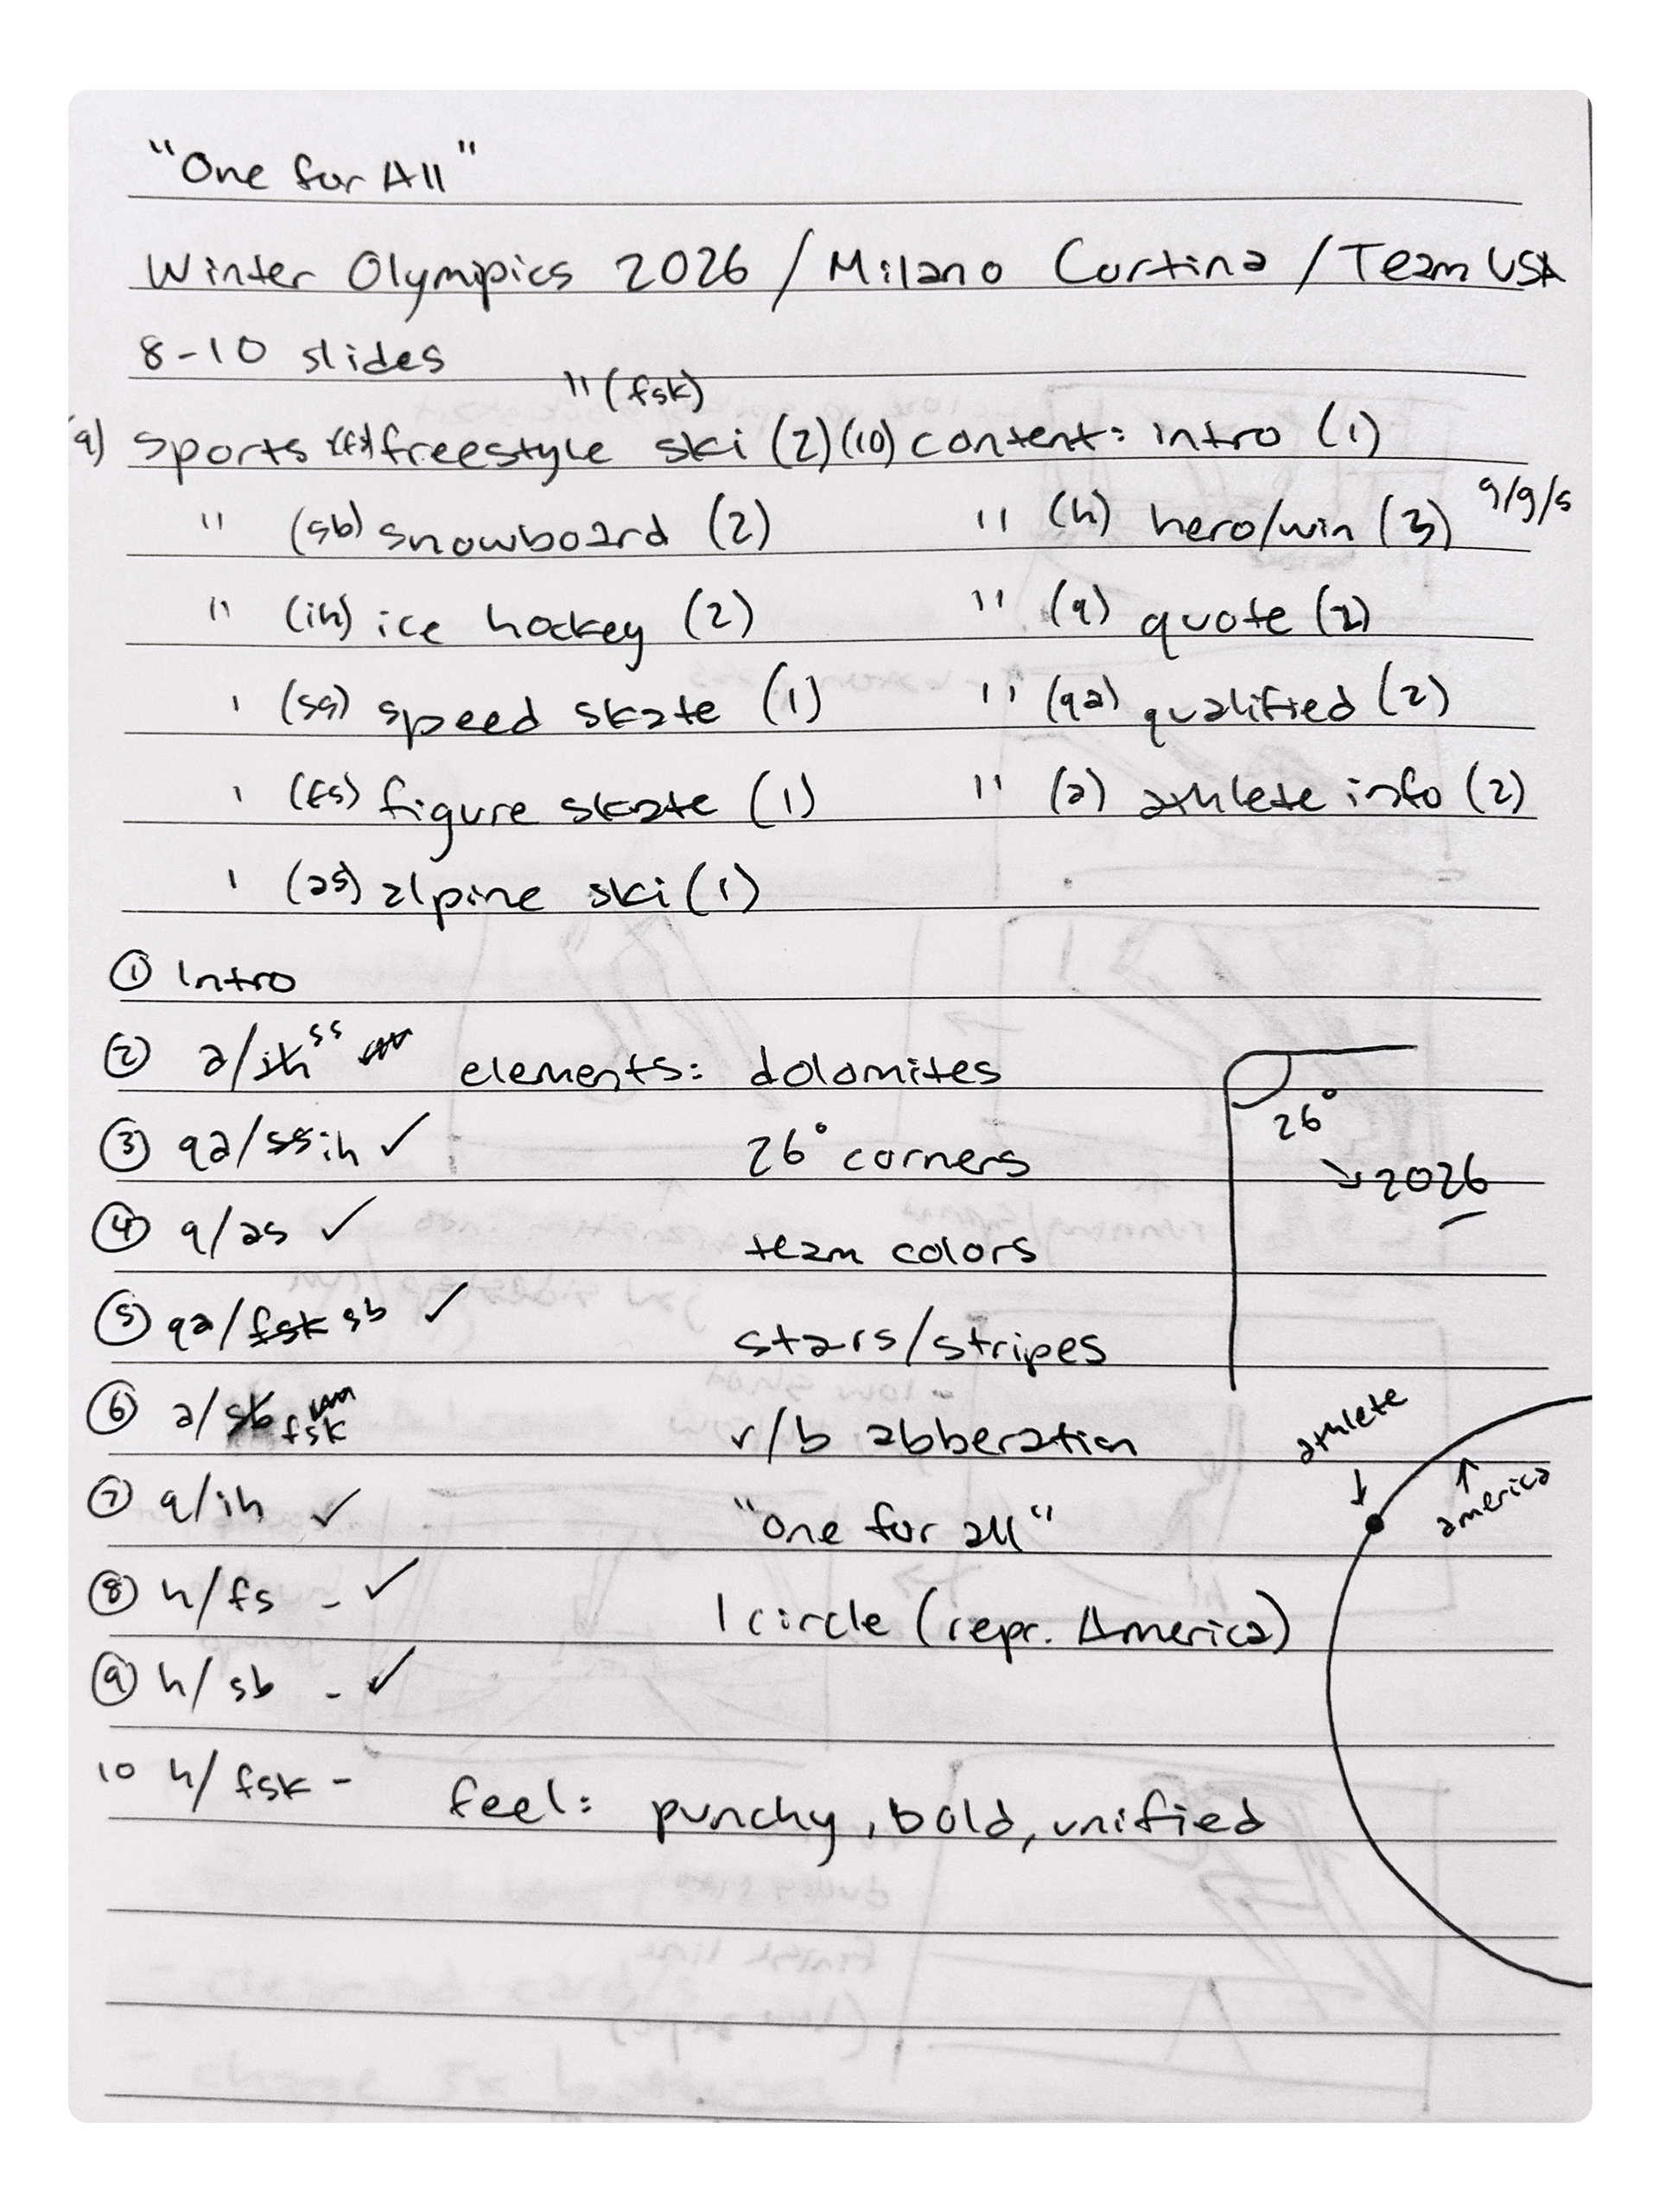 "One for All"
Winter Olympics 2026 / Milano Cortina / Team USA
8-10 slides
" (fsk)
9) sports freestyle ski (2) (10) content: intro (1)
" (sb) snowboard (2) " (h) hero/win (3) g/g/s
" (ih) ice hockey (2) " (q) quote (2)
' (ss) speed skate (1) " (qa) qualified (2)
' (fs) figure skate (1) " (a) athlete info (2)
' (as) alpine ski (1)
① Intro
② a/ih ss elements: dolomites
26°
③ qa/ss ih ✓ 26° corners
↘ 2026
④ q/as ✓ team colors
⑤ qa/fsk sb ✓ stars/stripes
⑥ a/sb fsk r/b abberation
athlete
america
⑦ q/ih ✓ "one for all"
⑧ h/fs - ✓ 1 circle (repr. America)
⑨ h/sb - ✓
10 h/fsk - feel: punchy, bold, unified